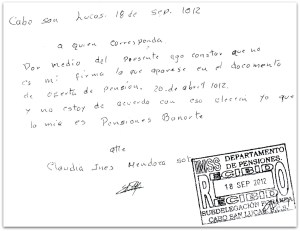 Cabo san Lucas. 18 de sep. 1012
a quien correspenda
Por medio del Presente ago constar que no
es mi firma la que aparese en el documento
de oferta de pension. 20. de abril 1012.
y no estoy de acuerdo con esa eleccin ya que
la mia es Pensiones Banorte
atte
Claudia Ines Mendoza
IMSS DEPARTAMENTO
DE PENSIONES.
RECIBIDO
18 SEP 2012
SUBDELEGACION
CABO SAN LUCAS